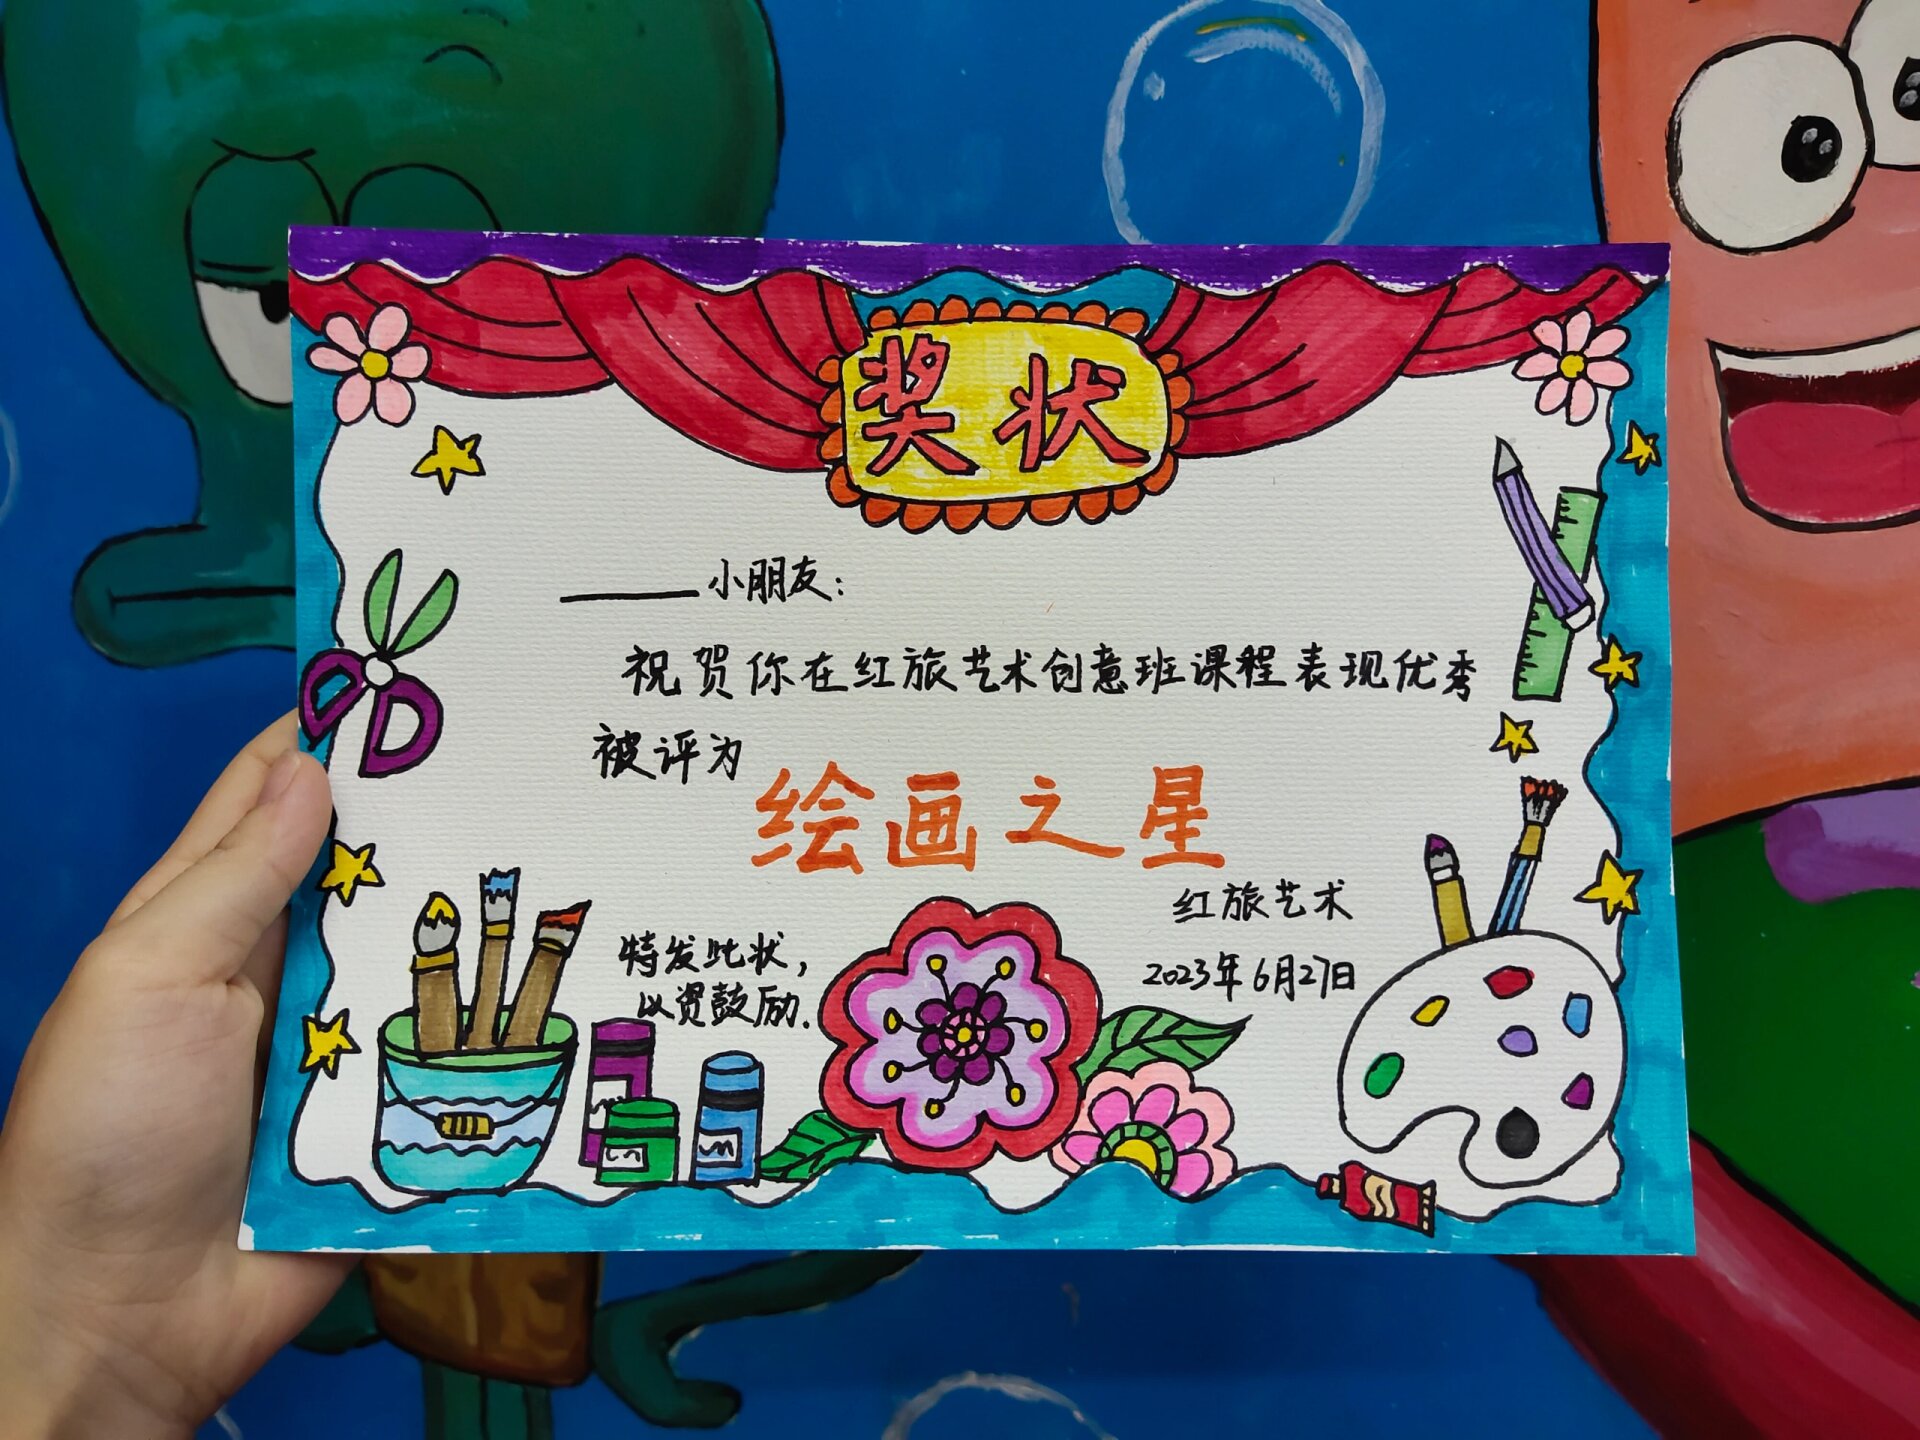 奖状
______小朋友：
祝贺你在红旅艺术创意班课程表现优秀
被评为
绘画之星
特发此状，
以资鼓励.
红旅艺术
2023年6月27日